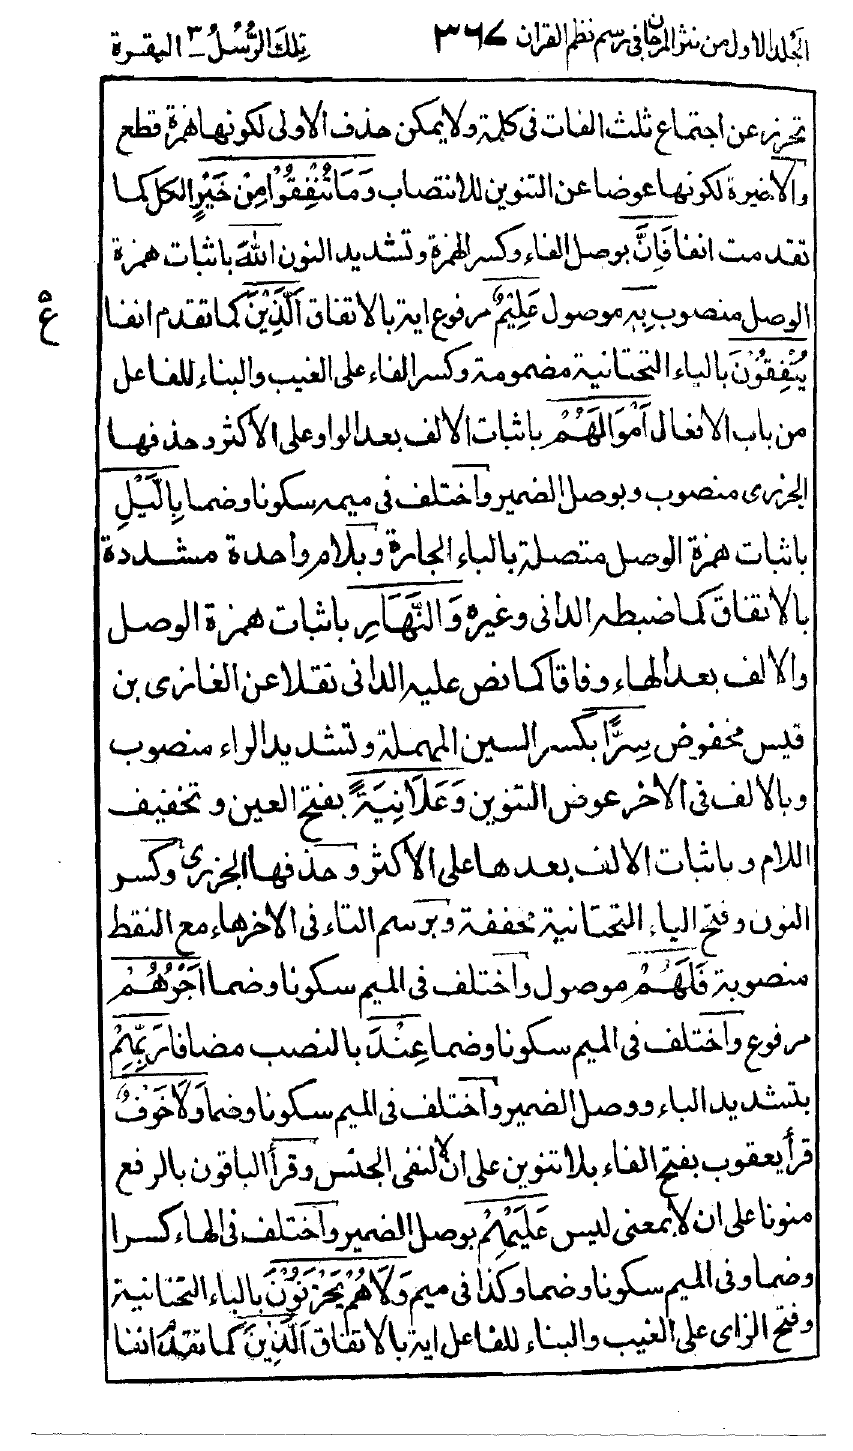 الجلد الاول من نثر المرجان فی رسم نظم القران ٣٦٧ تلك الرسل ٣ البقرة
تحرز عن اجتماع ثلث الفات فی كلمة ولا يمكن حذف الاولى لكونها همزة قطع
والاخيرة لكونها عوضا عن التنوين للانتصاب وَمَا تُنْفِقُوْا مِنْ خَيْرٍ الكل كما
تقدمت انفا فَاِنَّ بوصل الفاء وكسر الهمزة وتشديد النون اللهَ باثبات همزة
الوصل منصوب بِهٖ موصول عَلِيْمٌ مرفوع اية بالاتفاق اَلَّذِيْنَ كما تقدم انفا
ع
يُنْفِقُوْنَ بالياء التحتانية مضمومة وكسر الفاء على الغيب والبناء للفاعل
من باب الافعال اَمْوَالَهُمْ باثبات الالف بعد الواو على الاكثر وحذفها
الجزری منصوب وبوصل الضمير واختلف فی ميمه سكونا وضما بِالَّيْلِ
باثبات همزة الوصل متصلة بالباء الجارة وبلام واحدة مشددة
بالاتفاق كما ضبطه الدانی وغيره وَالنَّهَارِ باثبات همزة الوصل
والالف بعد الهاء وفاقا كما نص عليه الدانی نقلا عن الغازی بن
قيس مخفوض سِرًّا بكسر السين المهملة وتشديد الراء منصوب
وبالالف فی الاخر عوض التنوين وَعَلَانِيَةً بفتح العين وتخفيف
اللام وباثبات الالف بعدها على الاكثر وحذفها الجزری وكسر
النون وفتح الياء التحتانية مخففة وبرسم التاء فی الاخر هاء مع النقط
منصوبة فَلَهُمْ موصول واختلف فی الميم سكونا وضما اَجْرُهُمْ
مرفوع واختلف فی الميم سكونا وضما عِنْدَ بالنصب مضافا رَبِّهِمْ
بتشديد الباء ووصل الضمير واختلف فی الميم سكونا وضما وَلَا خَوْفٌ
قرأ يعقوب بفتح الفاء بلا تنوين على ان لا لنفی الجنس وقرأ الباقون بالرفع
منونا على ان لا بمعنى ليس عَلَيْهِمْ بوصل الضمير واختلف فی الهاء كسرا
وضما وفی الميم سكونا وضما وكذا فی ميم وَلَا هُمْ يَحْزَنُوْنَ بالياء التحتانية
وفتح الزای على الغيب والبناء للفاعل اية بالاتفاق اَلَّذِيْنَ كما تقدم انفا